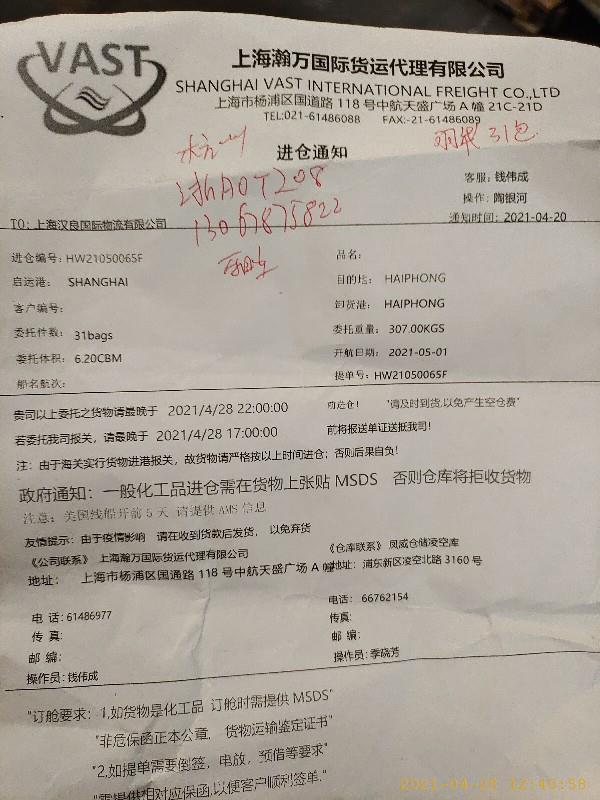 VAST
上海瀚万国际货运代理有限公司
SHANGHAI VAST INTERNATIONAL FREIGHT CO.,LTD
上海市杨浦区国道路 118 号中航天盛广场 A 幢 21C-21D
TEL:021-61486088 FAX:-21-61486089
31包
进仓通知
浙A0T208
13067875822
客服: 钱伟成
操作: 陶银河
通知时间: 2021-04-20
TO: 上海汉良国际物流有限公司
进仓编号: HW2105006SF
品名:
启运港: SHANGHAI
目的地: HAIPHONG
客户编号:
卸货港: HAIPHONG
委托件数: 31bags
委托重量: 307.00KGS
委托体积: 6.20CBM
开航日期: 2021-05-01
船名航次:
提单号: HW2105006SF
贵司以上委托之货物请最晚于 2021/4/28 22:00:00 前进仓! "请及时到货,以免产生空仓费"
若委托我司报关, 请最晚于 2021/4/28 17:00:00 前将报送单证送抵我司!
注: 由于海关实行货物进港报关, 故货物请严格按以上时间进仓; 否则后果自负!
政府通知: 一般化工品进仓需在货物上张贴 MSDS 否则仓库将拒收货物
注意: 美国线船开前 5 天 请提供 AMS 信息
友情提示: 由于疫情影响 请在收到货款后发货, 以免弃货
《公司联系》 上海瀚万国际货运代理有限公司
《仓库联系》 凤威仓储凌空库
地址: 上海市杨浦区国通路 118 号中航天盛广场 A 幢
地址: 浦东新区凌空北路 3160 号
电 话: 61486977
电话: 66762154
传 真:
传真:
邮 编:
邮 编:
操作员: 钱伟成
操作员: 季晓芳
"订舱要求: 1,如货物是化工品 订舱时需提供 MSDS"
"非危保函正本公章, 货物运输鉴定证书"
"2,如提单需要倒签, 电放, 预借等要求"
"需提供相对应保函,以便客户顺利签单."